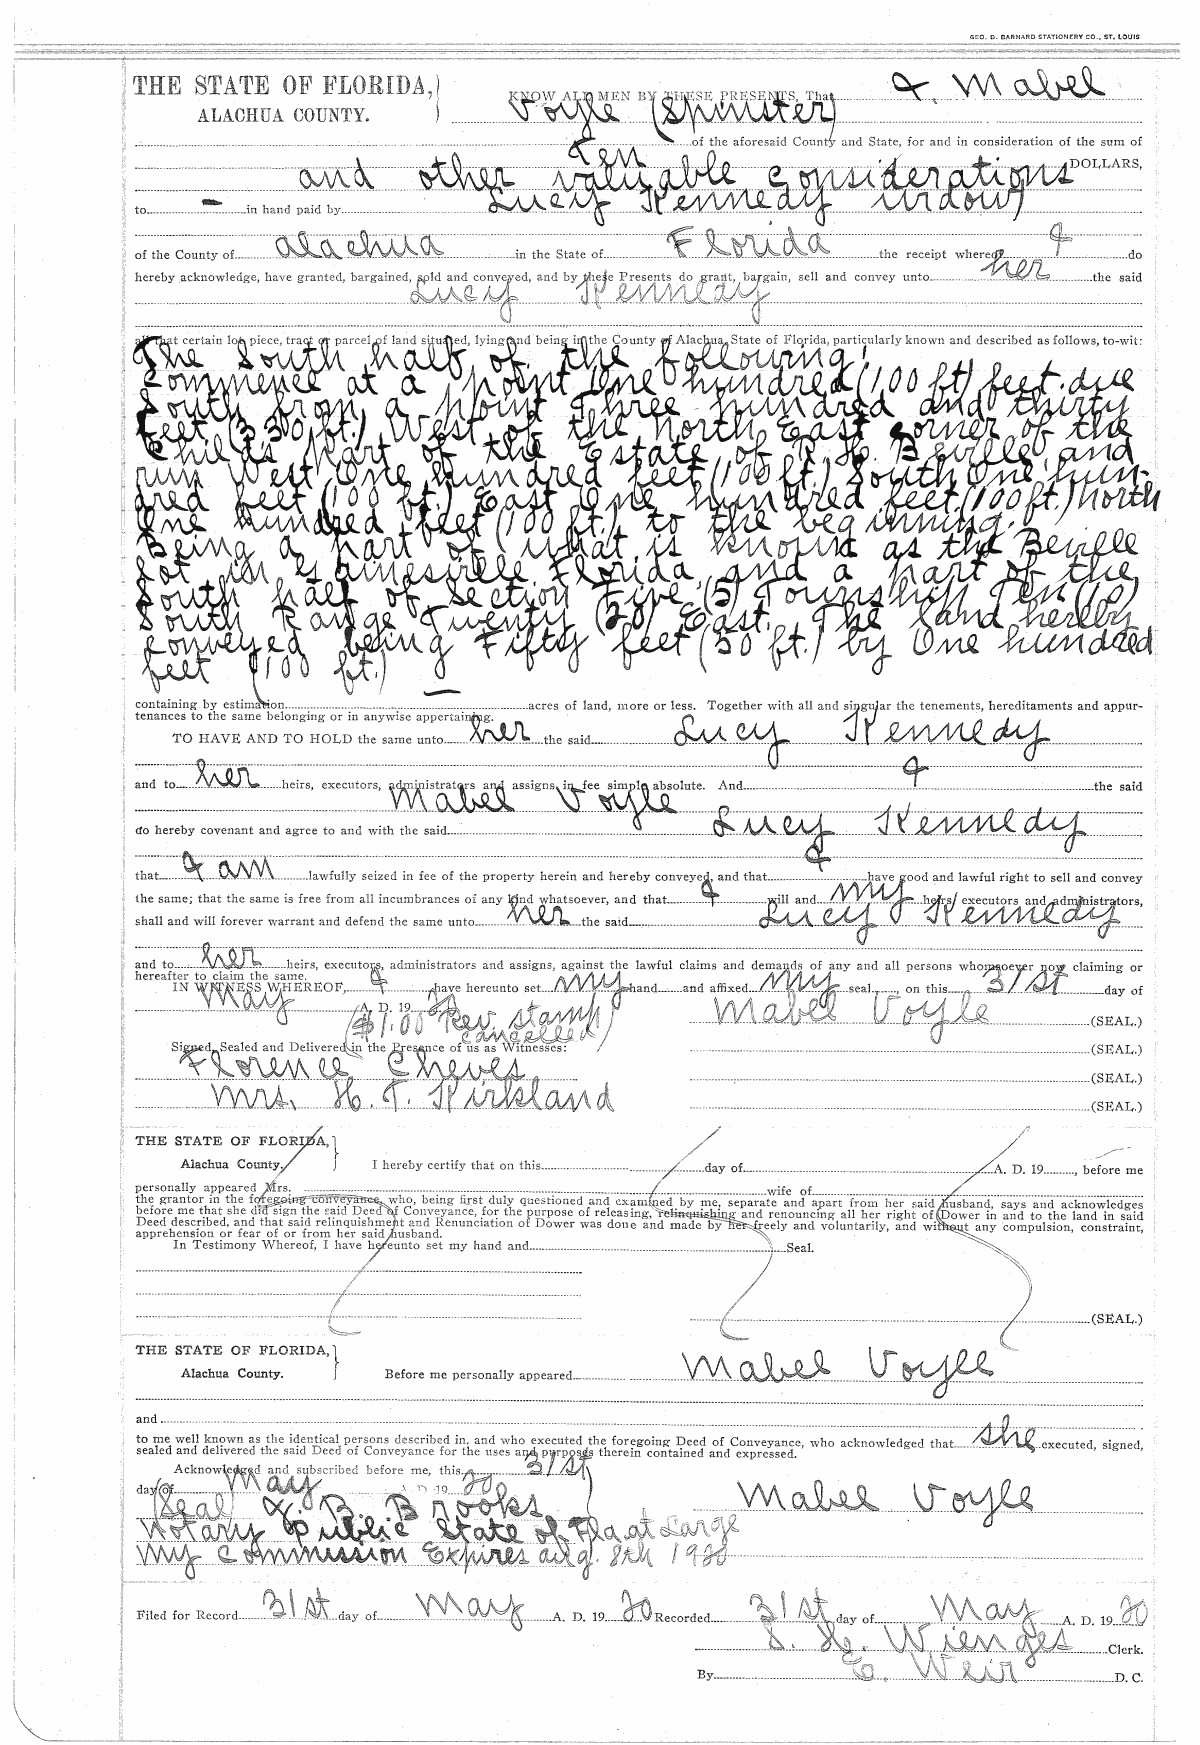 GEO. D. BARNARD STATIONERY CO., ST. LOUIS
THE STATE OF FLORIDA,
ALACHUA COUNTY.
KNOW ALL MEN BY THESE PRESENTS, That I, Mabel
Voyle (Spinster)
of the aforesaid County and State, for and in consideration of the sum of
Ten
and other valuable considerations DOLLARS,
to - in hand paid by Lucy Kennedy widow
of the County of Alachua in the State of Florida the receipt whereof I do
hereby acknowledge, have granted, bargained, sold and conveyed, and by these Presents do grant, bargain, sell and convey unto her the said
Lucy Kennedy
all that certain lot piece, tract or parcel of land situated, lying and being in the County of Alachua, State of Florida, particularly known and described as follows, to-wit:
The South half of the following:
Commence at a point One hundred (100 ft) feet due
South from a point Three hundred and thirty
feet (330 ft.) West of the North East corner of the
Childs part of the Estate of R. H. Beville, and
run West One hundred feet (100 ft.) South One hun-
dred feet (100 ft.) East One hundred feet (100 ft.) North
One hundred feet (100 ft.) to the beginning.
Being a part of what is known as the Beville
Lot in Gainesville Florida, and a part of the
South half of Section Five (5) Township Ten (10)
South Range Twenty (20) East. The land hereby
conveyed being Fifty feet (50 ft.) by One hundred
feet (100 ft.)
containing by estimation - acres of land, more or less. Together with all and singular the tenements, hereditaments and appur-
tenances to the same belonging or in anywise appertaining.
TO HAVE AND TO HOLD the same unto her the said Lucy Kennedy
and to her heirs, executors, administrators and assigns in fee simple absolute. And I the said
Mabel Voyle
do hereby covenant and agree to and with the said Lucy Kennedy
that I am lawfully seized in fee of the property herein and hereby conveyed, and that I have good and lawful right to sell and convey
the same; that the same is free from all incumbrances of any kind whatsoever, and that I will and my heirs, executors and administrators,
shall and will forever warrant and defend the same unto her the said Lucy Kennedy
and to her heirs, executors, administrators and assigns, against the lawful claims and demands of any and all persons whomsoever now claiming or
hereafter to claim the same.
IN WITNESS WHEREOF, I have hereunto set my hand and affixed my seal, on this 31st day of
May A. D. 1920 Mabel Voyle (SEAL.)
($1.00 Rev. stamp
cancelled)
(SEAL.)
Signed, Sealed and Delivered in the Presence of us as Witnesses:
Florence Cheves (SEAL.)
Mrs. H. T. Kirkland (SEAL.)
THE STATE OF FLORIDA,
Alachua County, I hereby certify that on this day of A. D. 19 , before me
personally appeared Mrs. wife of
the grantor in the foregoing conveyance, who, being first duly questioned and examined by me, separate and apart from her said husband, says and acknowledges
before me that she did sign the said Deed of Conveyance, for the purpose of releasing, relinquishing and renouncing all her right of Dower in and to the land in said
Deed described, and that said relinquishment and Renunciation of Dower was done and made by her freely and voluntarily, and without any compulsion, constraint,
apprehension or fear of or from her said husband.
In Testimony Whereof, I have hereunto set my hand and Seal.
(SEAL.)
THE STATE OF FLORIDA,
Alachua County. Before me personally appeared Mabel Voyle
and
to me well known as the identical persons described in, and who executed the foregoing Deed of Conveyance, who acknowledged that she executed, signed,
sealed and delivered the said Deed of Conveyance for the uses and purposes therein contained and expressed.
Acknowledged and subscribed before me, this 31st
day of May A D 19 20
(Seal) B. Brooks Mabel Voyle
Notary Public State of Fla. at Large
My Commission Expires Aug. 8th 1920
Filed for Record 31st day of May A. D. 19 20 Recorded 31st day of May A. D. 19 20
S. H. Wienges Clerk.
By E. Weir D. C.